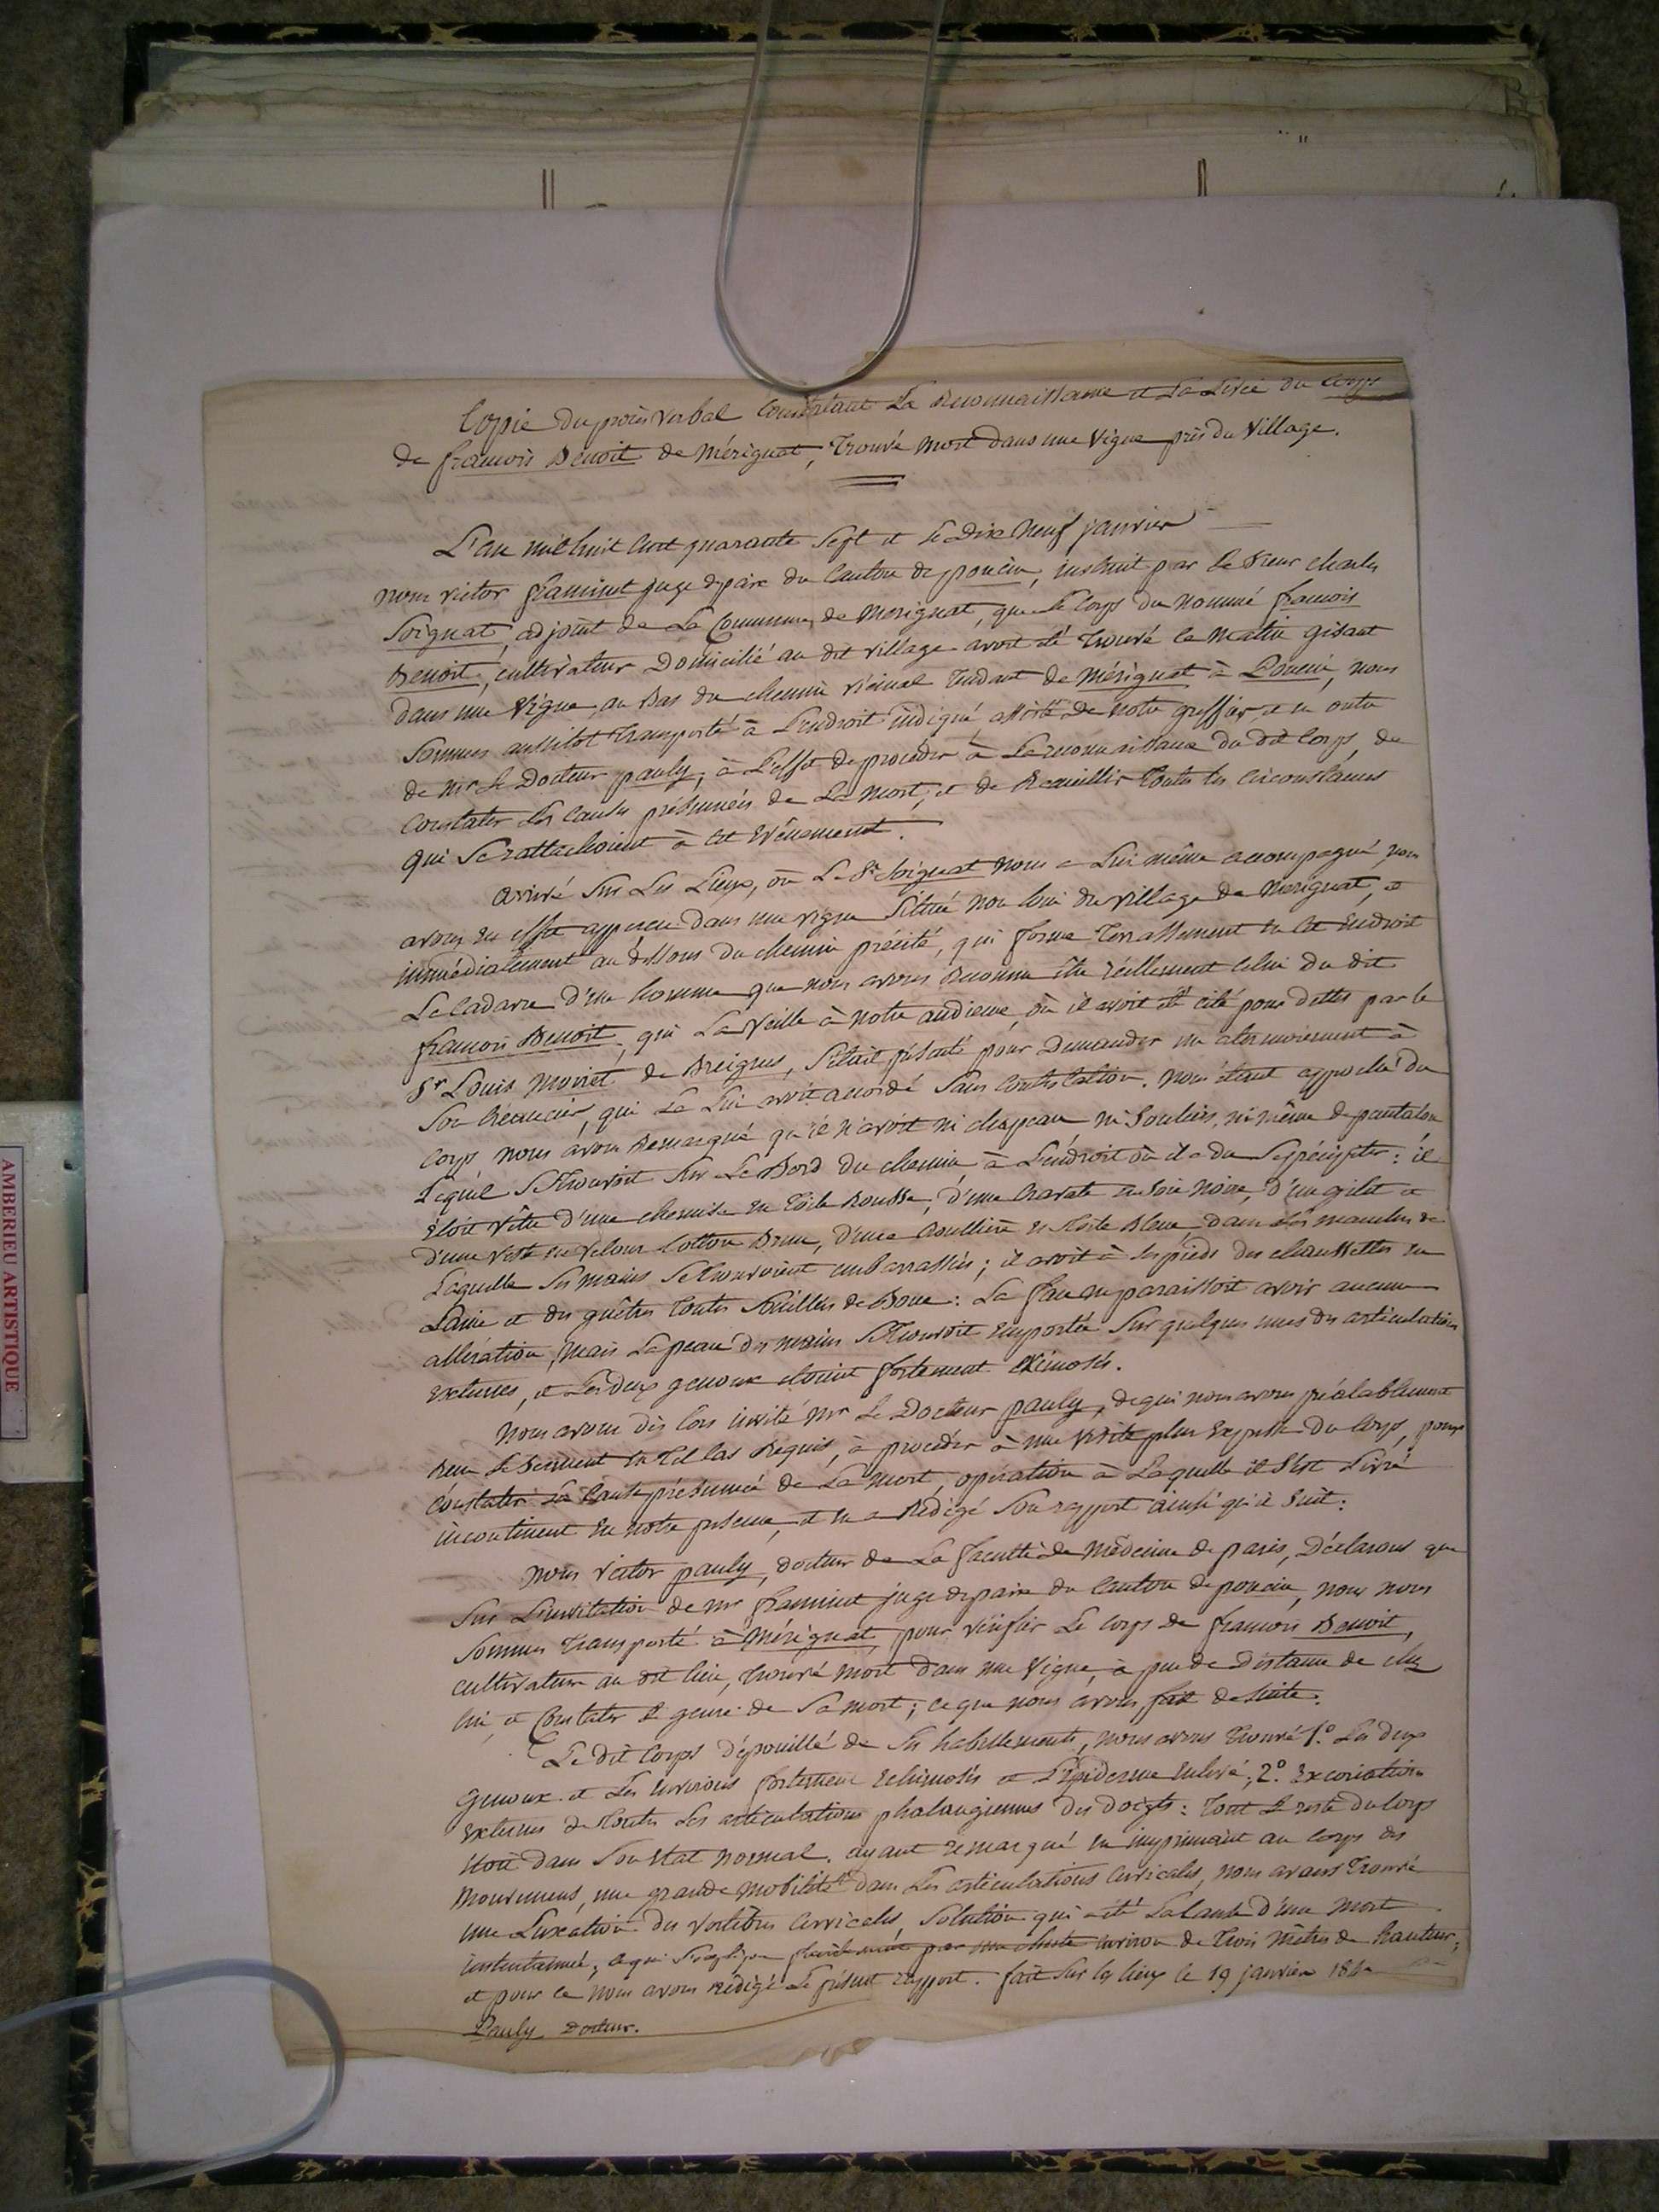 Copie du procès verbal Constatant La Reconnaissance et La Levée du Corps
de francois Benoit de Mérignat, Trouvé Mort dans une Vigne près du Village.
L'an mil huit cent quarante Sept et le Dix Neuf janvier
nous victor framinet juge de paix du Canton de poncin, instruit par le Sieur charles
Soignat, adjoint de La Commune de Mérignat, que le Corps du Nommé francois
Benoit, cultivateur Domicilié au dit village avoit été Trouvé ce Matin gisant
dans une Vigne, au Bas du chemin vicinal Tendant de Mérignat à Poncin, nous
Sommes aussitôt Transporté à L'endroit indiqué, assisté de notre greffier, et en outre
de Mr Le Docteur pauly, à L'effet de procéder à La reconnaissance du dit Corps, de
Constater Les Causes présumées de La Mort, et de Recueillir Toutes les circonstances
qui Se rattachoient à cet Evênement.
Arrivé Sur Les Lieux, où Le Sr Soignat Nous a Lui même accompagné, nous
avons en effet apperçu dans une vigne Située non loin du village de Mérignat, et
immédiatement au dessous du chemin précité, qui forme Terrassement en cet Endroit
Le Cadavre d'un homme que nous avons Reconnu être réellement Celui du dit
francois Benoit, qui La Veille à Notre audience, où il avoit été cité pour dettes par le
Sr Louis Moiret de Breignes, S'étoit présenté pour Demander un atermoiement à
Son Créancier, qui Le Lui avoit accordé Sans Contestation. Nous étant approché du
Corps nous avons Remarqué qu'il n'avoit ni chapeau ni Souliers, ni même de pantalon
Lequel Se Trouvoit Sur Le Bord du chemin à L'endroit où il a du Se précipiter : il
étoit Vêtu d'une chemise en Toile Rousse, d'une Cravate en Soie Noire, d'un gilet et
d'une Veste en Velours Cotton Brun, d'une Roullière en Toile Bleue, dans Les manches de
Laquelle Ses Mains Se Trouvoient embarrassées ; il avoit à Ses pieds des chaussettes en
Laine et des guêtres Toutes Souillées de Boue : La face ne paraissoit avoir aucune
altération, Mais La peau des mains Se Trouvoit Emportée Sur quelques unes des articulations
externes, et Les deux genoux étoient fortement ékimosés.
Nous avons dès Lors invité Mr Le Docteur pauly, de qui nous avons préalablement
Reçu Le Serment en Tel Cas Requis, à procéder à une Visite plus Expresse du Corps, pour
Constater La Cause présumée de La Mort, opération à Laquelle il S'est Livré
incontinent en notre présence, et en a Rédigé Son rapport ainsi qu'il Suit :
Nous Victor pauly, docteur de La faculté de Médecine de paris, Déclarons que
Sur L'invitation de Mr framinet juge de paix du Canton de poncin, nous nous
Sommes Transporté à Mérignat, pour Vérifier Le Corps de francois Benoit,
cultivateur au dit lieu, Trouvé Mort dans une Vigne, à peu de Distance de chez
lui, et Constater Le genre de Sa Mort ; ce que nous avons fait de Suite.
Le dit Corps dépouillé de Ses habillements, nous avons Trouvé 1.° Les deux
Genoux et Les Environs fortement Echimosés et L'Epiderme Enlevé ; 2.° Excoriation
externes de Toutes Les articulations phalangiennes des doigts : Tout Le reste du Corps
étoit dans Son état Normal. ayant remarqué en imprimant au Corps des
Mouvemens, une grande Mobilité dans Les articulations Cervicales, nous avons Trouvé
une Luxation des Vertèbres Cervicales, Solution qui a été La Cause d'une Mort
instantannée, ce qui S'explique par une chute environ de Trois Mètres de hauteur ;
et pour ce Nous avons Rédigé Le présent rapport. fait Sur les lieux le 19 janvier
Pauly Docteur.
AMBERIEU ARTISTIQUE